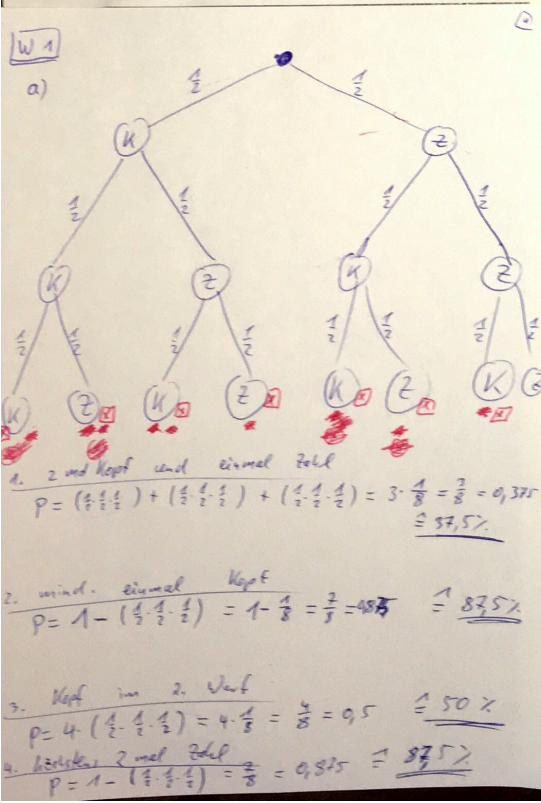 W 1
a)
1/2 1/2
K Z
1/2 1/2 1/2 1/2
K Z K Z
1/2 1/2 1/2 1/2 1/2 1/2 1/2 1/2
K Z K Z K Z K Z
1. 2 mal Kopf und einmal Zahl
P = (1/2·1/2·1/2) + (1/2·1/2·1/2) + (1/2·1/2·1/2) = 3·1/8 = 3/8 = 0,375
≙ 37,5%
2. mind. einmal Kopf
P = 1 - (1/2·1/2·1/2) = 1 - 1/8 = 7/8 = 0,875 ≙ 87,5%
3. Kopf im 2. Wurf
P = 4·(1/2·1/2·1/2) = 4·1/8 = 4/8 = 0,5 ≙ 50%
4. höchstens 2 mal Zahl
P = 1 - (1/2·1/2·1/2) = 7/8 = 0,875 ≙ 87,5%